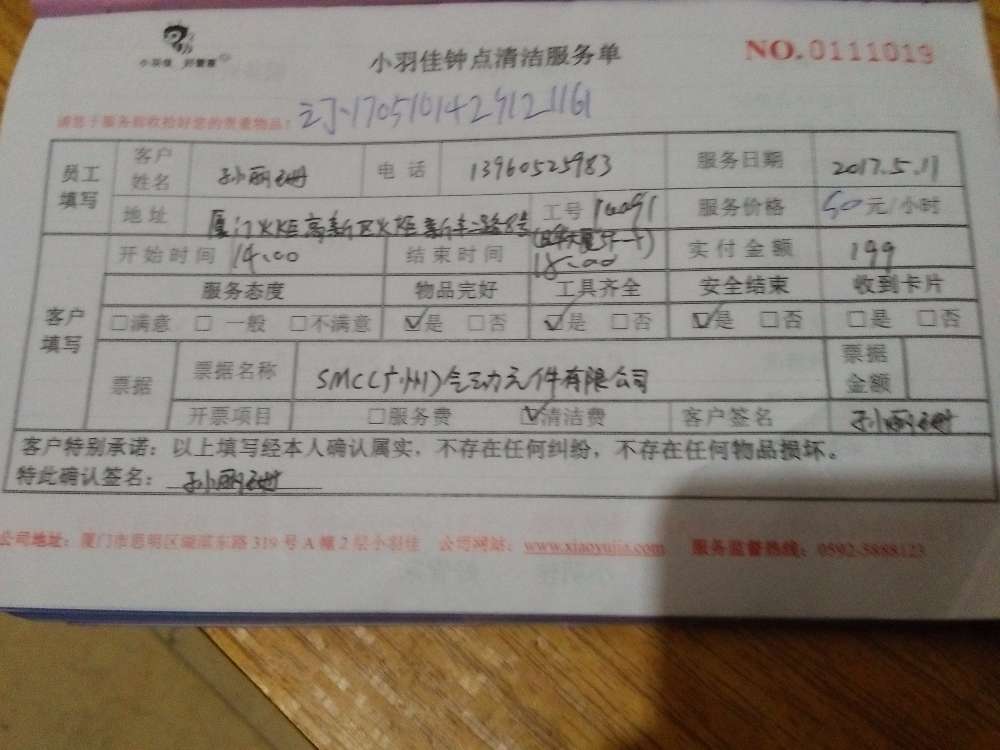 小羽佳 好管家
小羽佳钟点清洁服务单
NO.0111019
订1705101429121161
请您于服务前收拾好您的贵重物品!
员工填写 客户姓名 孙丽珊 电话 13960525983 服务日期 2017.5.11
地址 厦门火炬高新区火炬新丰二路8号 工号 服务价格 50元/小时
开始时间 14:00 结束时间 18:00 实付金额 199
客户填写 服务态度 物品完好 工具齐全 安全结束 收到卡片
□满意 □一般 □不满意 ☑是 □否 ☑是 □否 ☑是 □否 □是 □否
票据 票据名称 SMC(广州)气动元件有限公司 票据金额
开票项目 □服务费 ☑清洁费 客户签名 孙丽珊
客户特别承诺:以上填写经本人确认属实,不存在任何纠纷,不存在任何物品损坏。
特此确认签名: 孙丽珊
公司地址:厦门市思明区 东路319号A幢2层小羽佳 公司网站:www.xiaoyujia.com 服务监督热线:0592-5888123